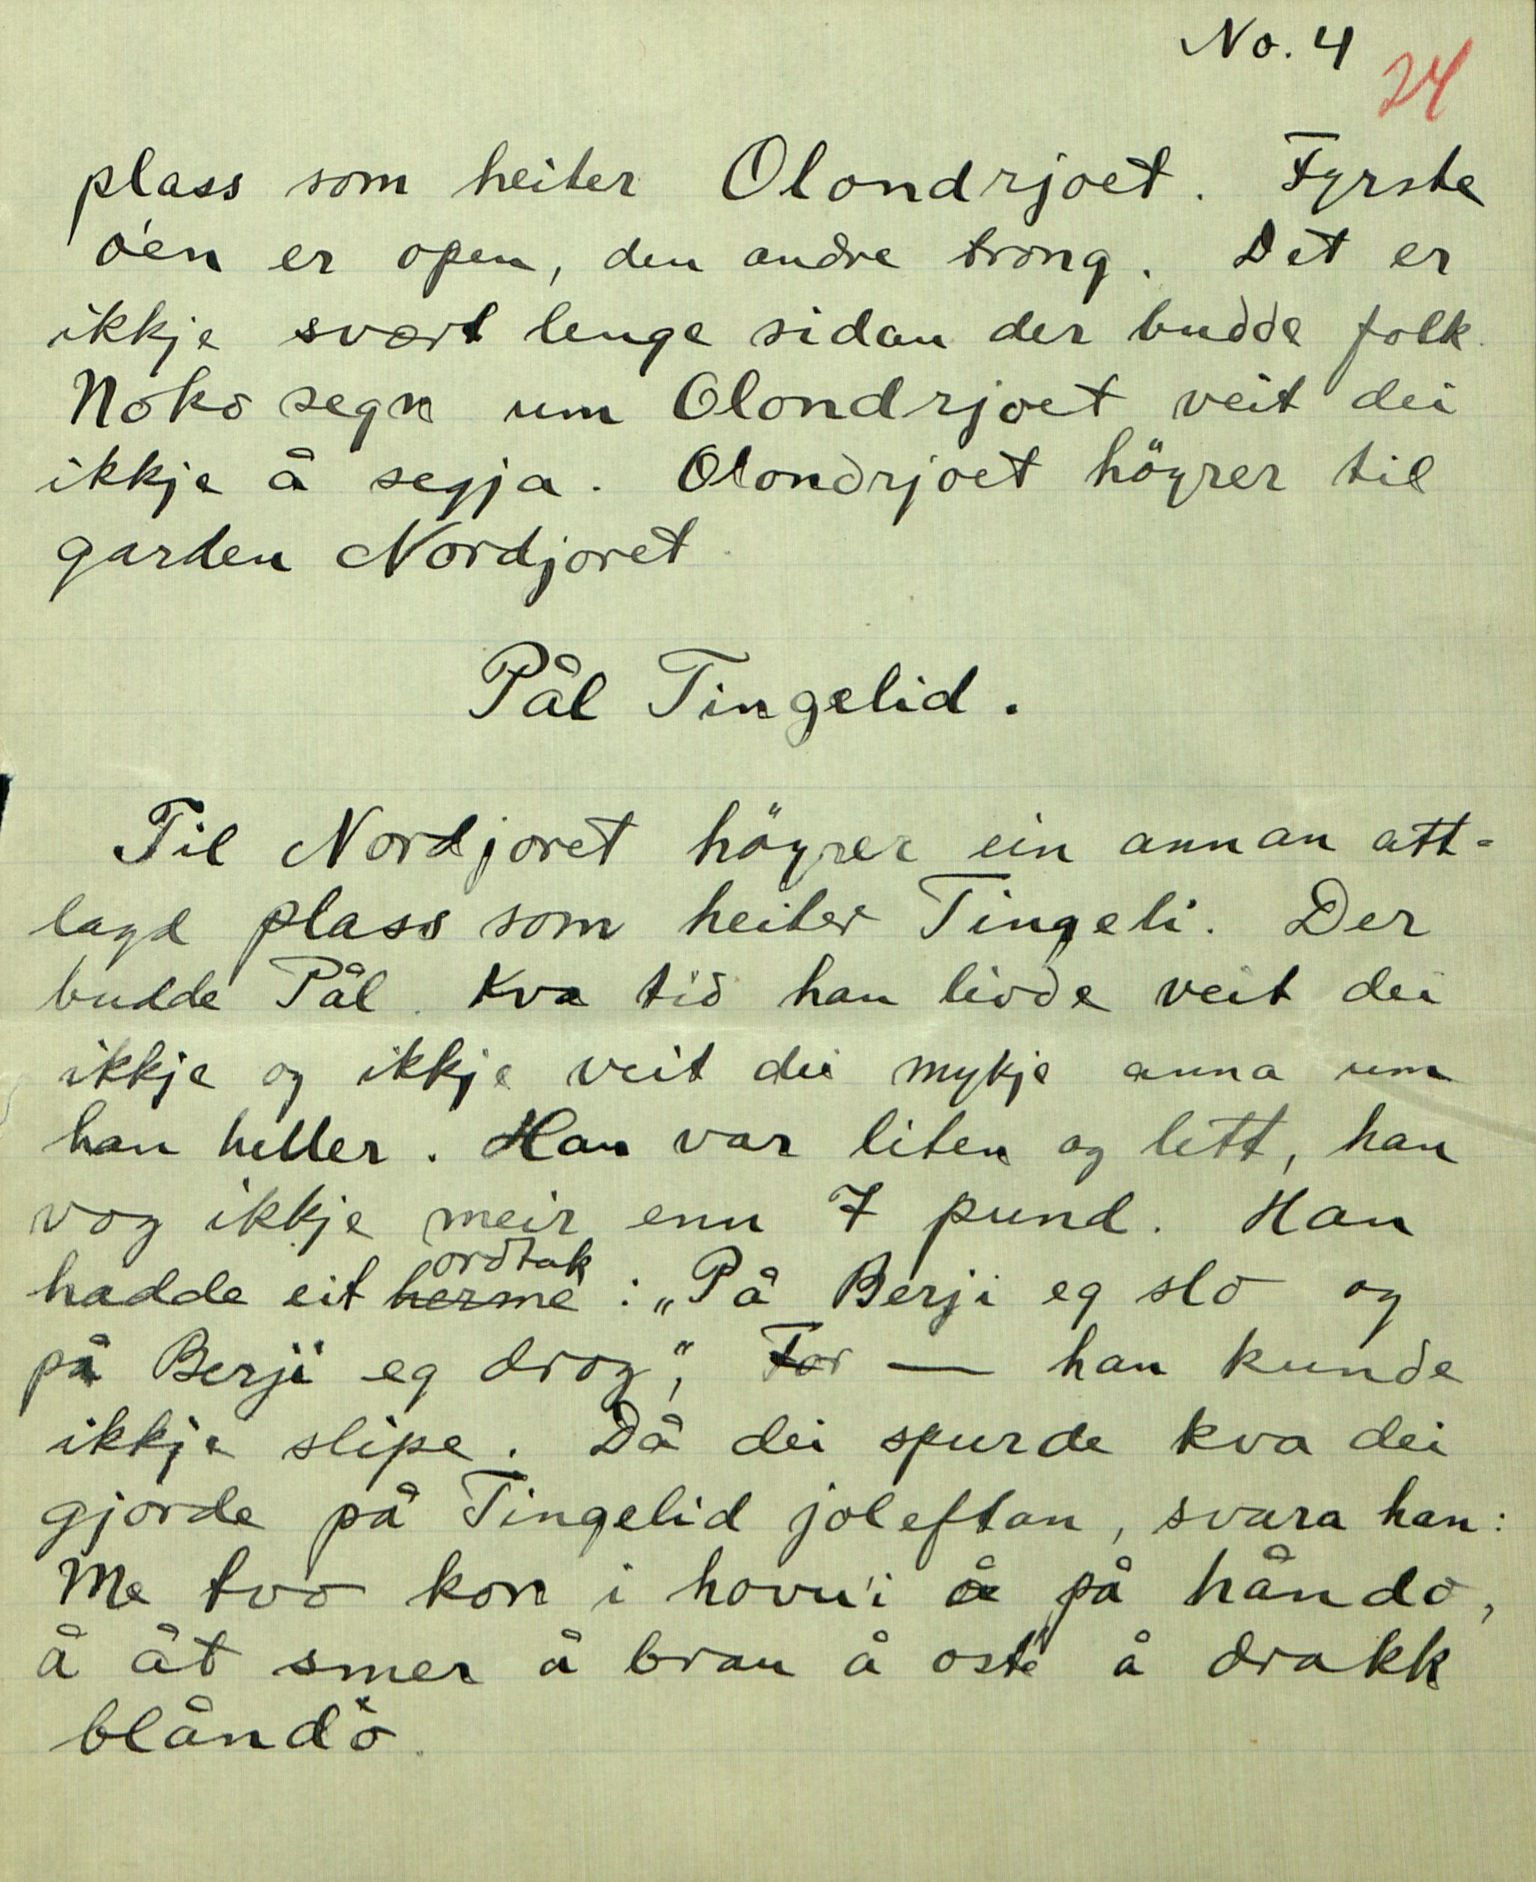 No. 4
24
plass som heiter Olondrjoet. Fyrste
o'en er open, den andre trong. Det er
ikkje svært lenge sidan der budde folk.
Noko segn um Olondrjoet veit dei
ikkje å segja. Olondrjoet höyrer til
garden Nordjoret.
Pål Tingelid.
Til Nordjoret höyrer ein annan att-
lagd plass som heiter Tingeli. Der
budde Pål. Kva tid han livde veit dei
ikkje og ikkje veit dei mykje anna um
han heller. Han var liten og lett, han
vog ikkje meir enn 7 pund. Han
ordtak
hadde eit herme : „På Berji eg slo og
på Berji eg drog", For — han kunde
ikkje slipe. Då dei spurde kva dei
gjorde på Tingelid joleftan, svara han:
Me tvo kon i hovu'i å på håndo,
å åt smer å brau å oste å drakk
blåndo.